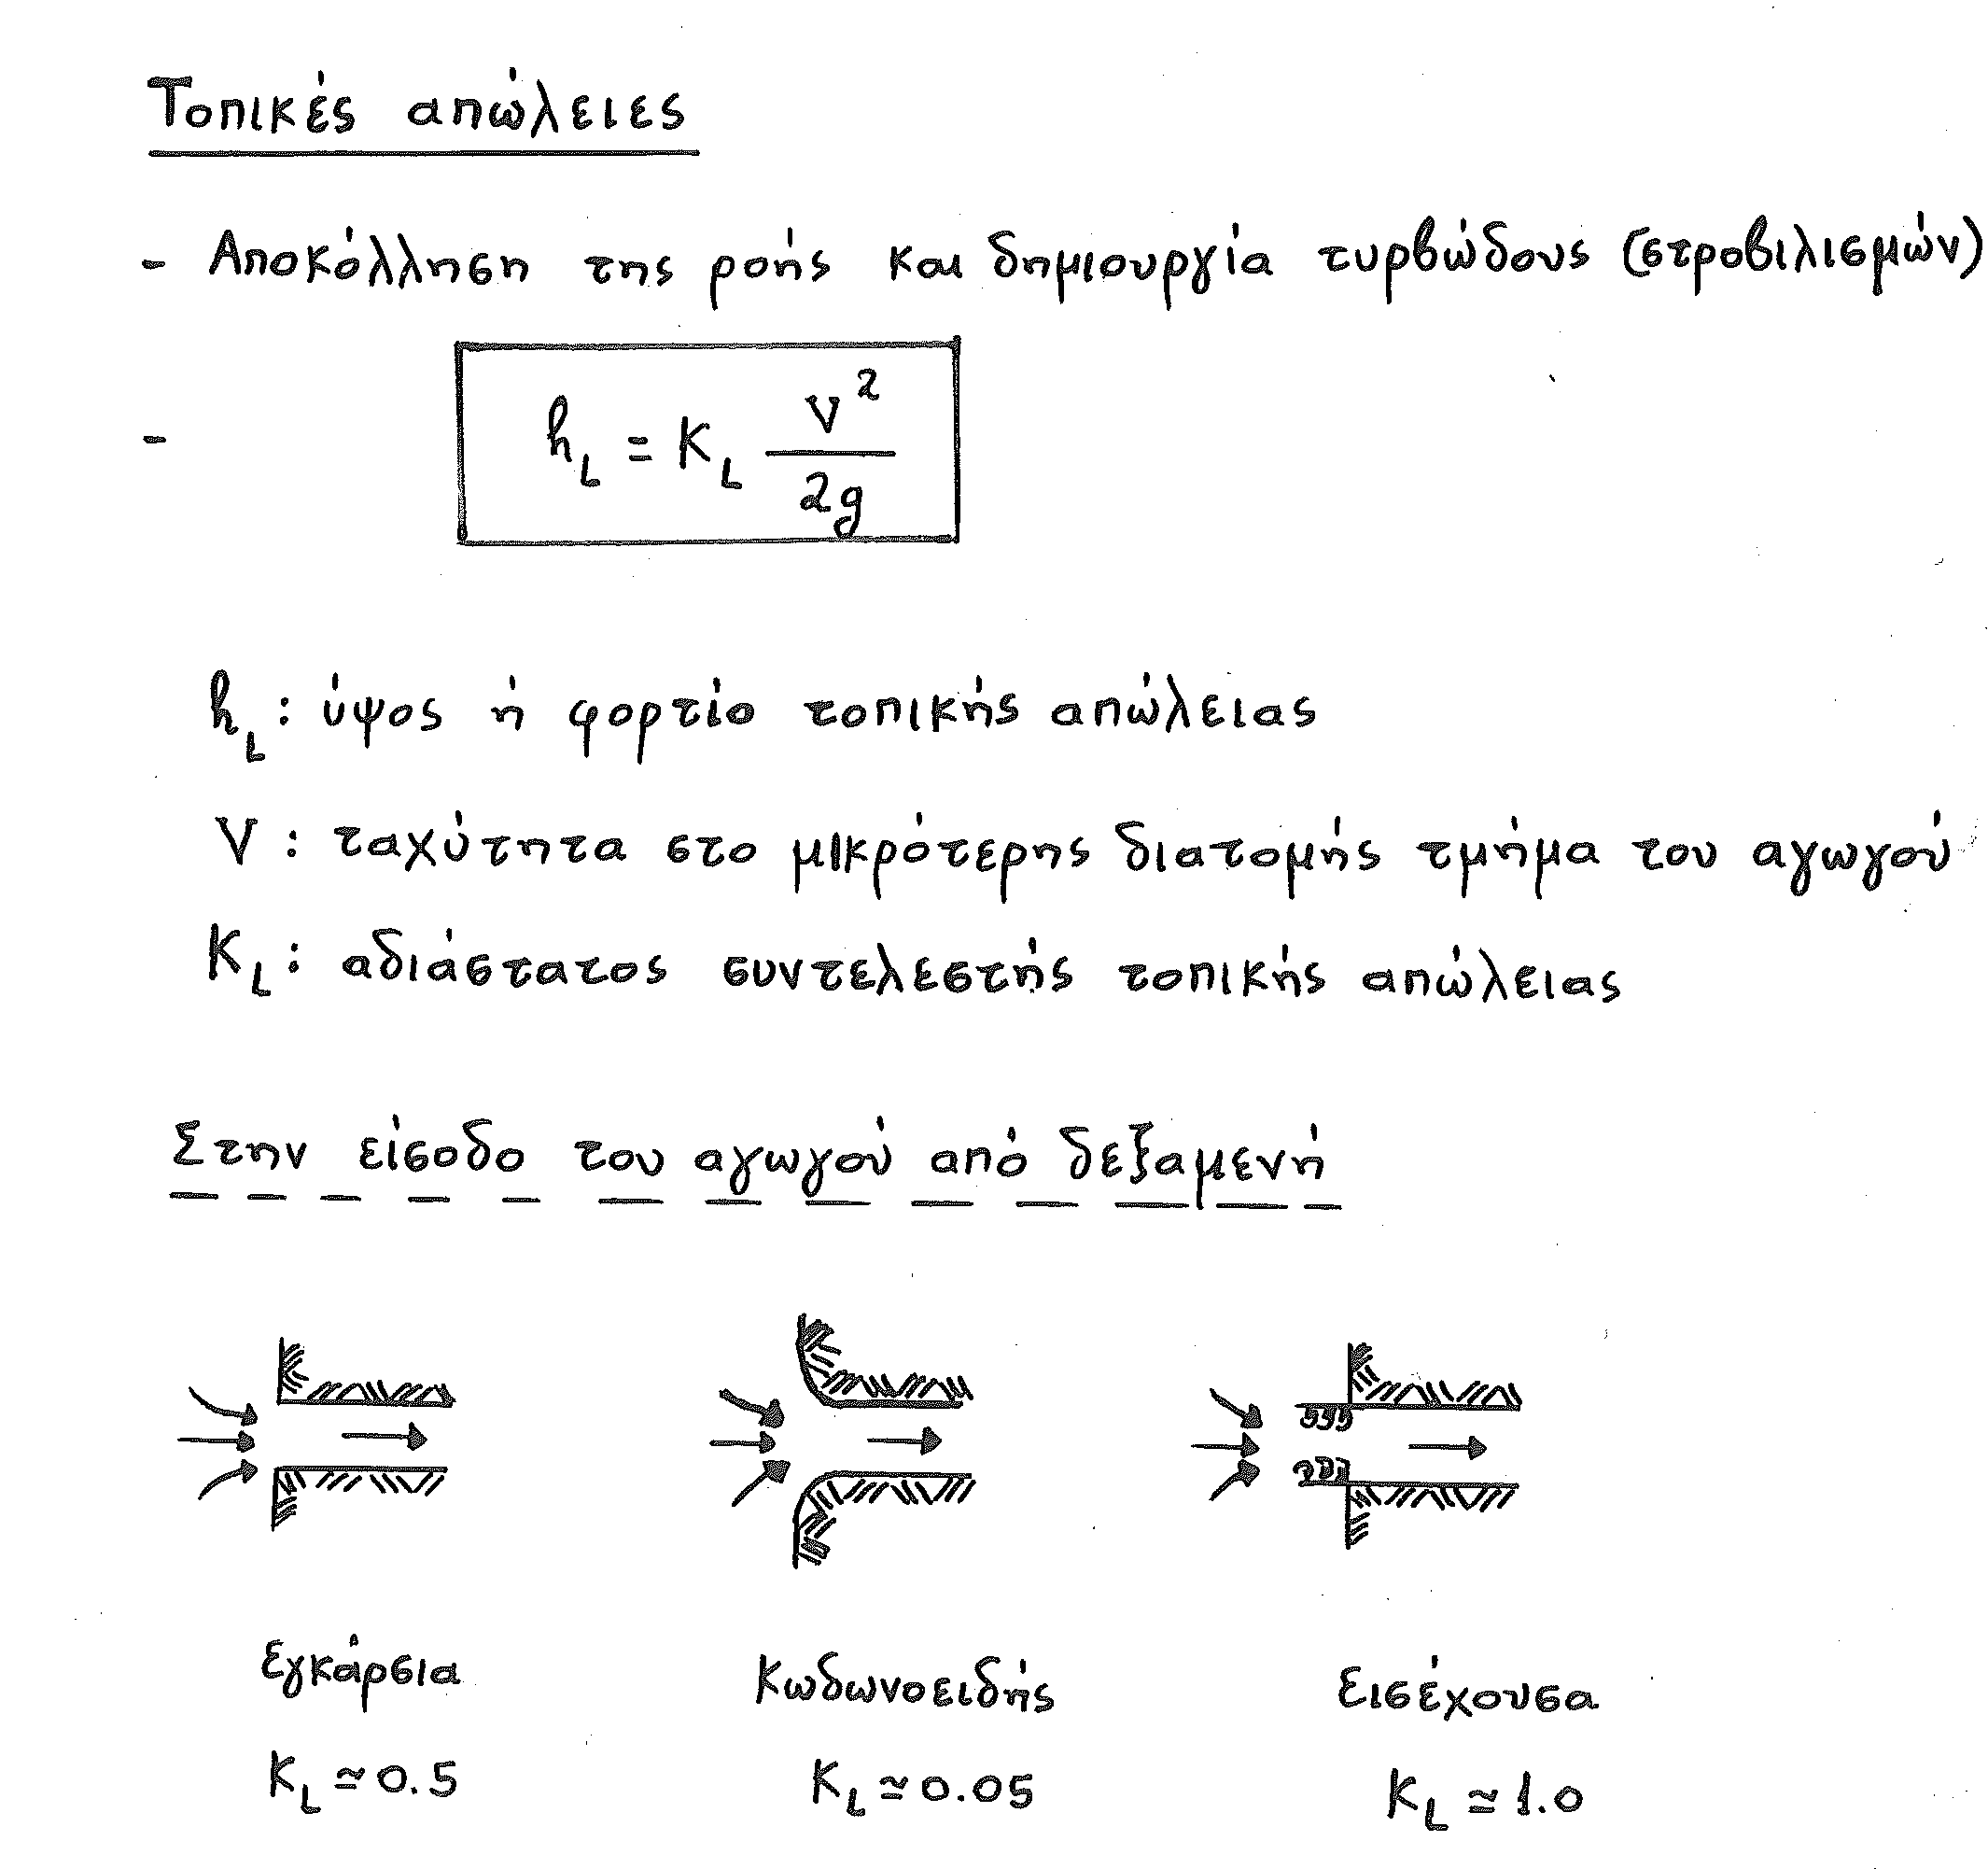 Τοπικές απώλειες
- Αποκόλληση της ροής και δημιουργία τυρβώδους (στροβιλισμών)
- h_L = K_L V²/2g
h_L : ύψος ή φορτίο τοπικής απώλειας
V : ταχύτητα στο μικρότερης διατομής τμήμα του αγωγού
K_L : αδιάστατος συντελεστής τοπικής απώλειας
Στην είσοδο του αγωγού από δεξαμενή
Εγκάρσια Κωδωνοειδής Εισέχουσα
K_L ≃ 0.5 K_L ≃ 0.05 K_L ≃ 1.0